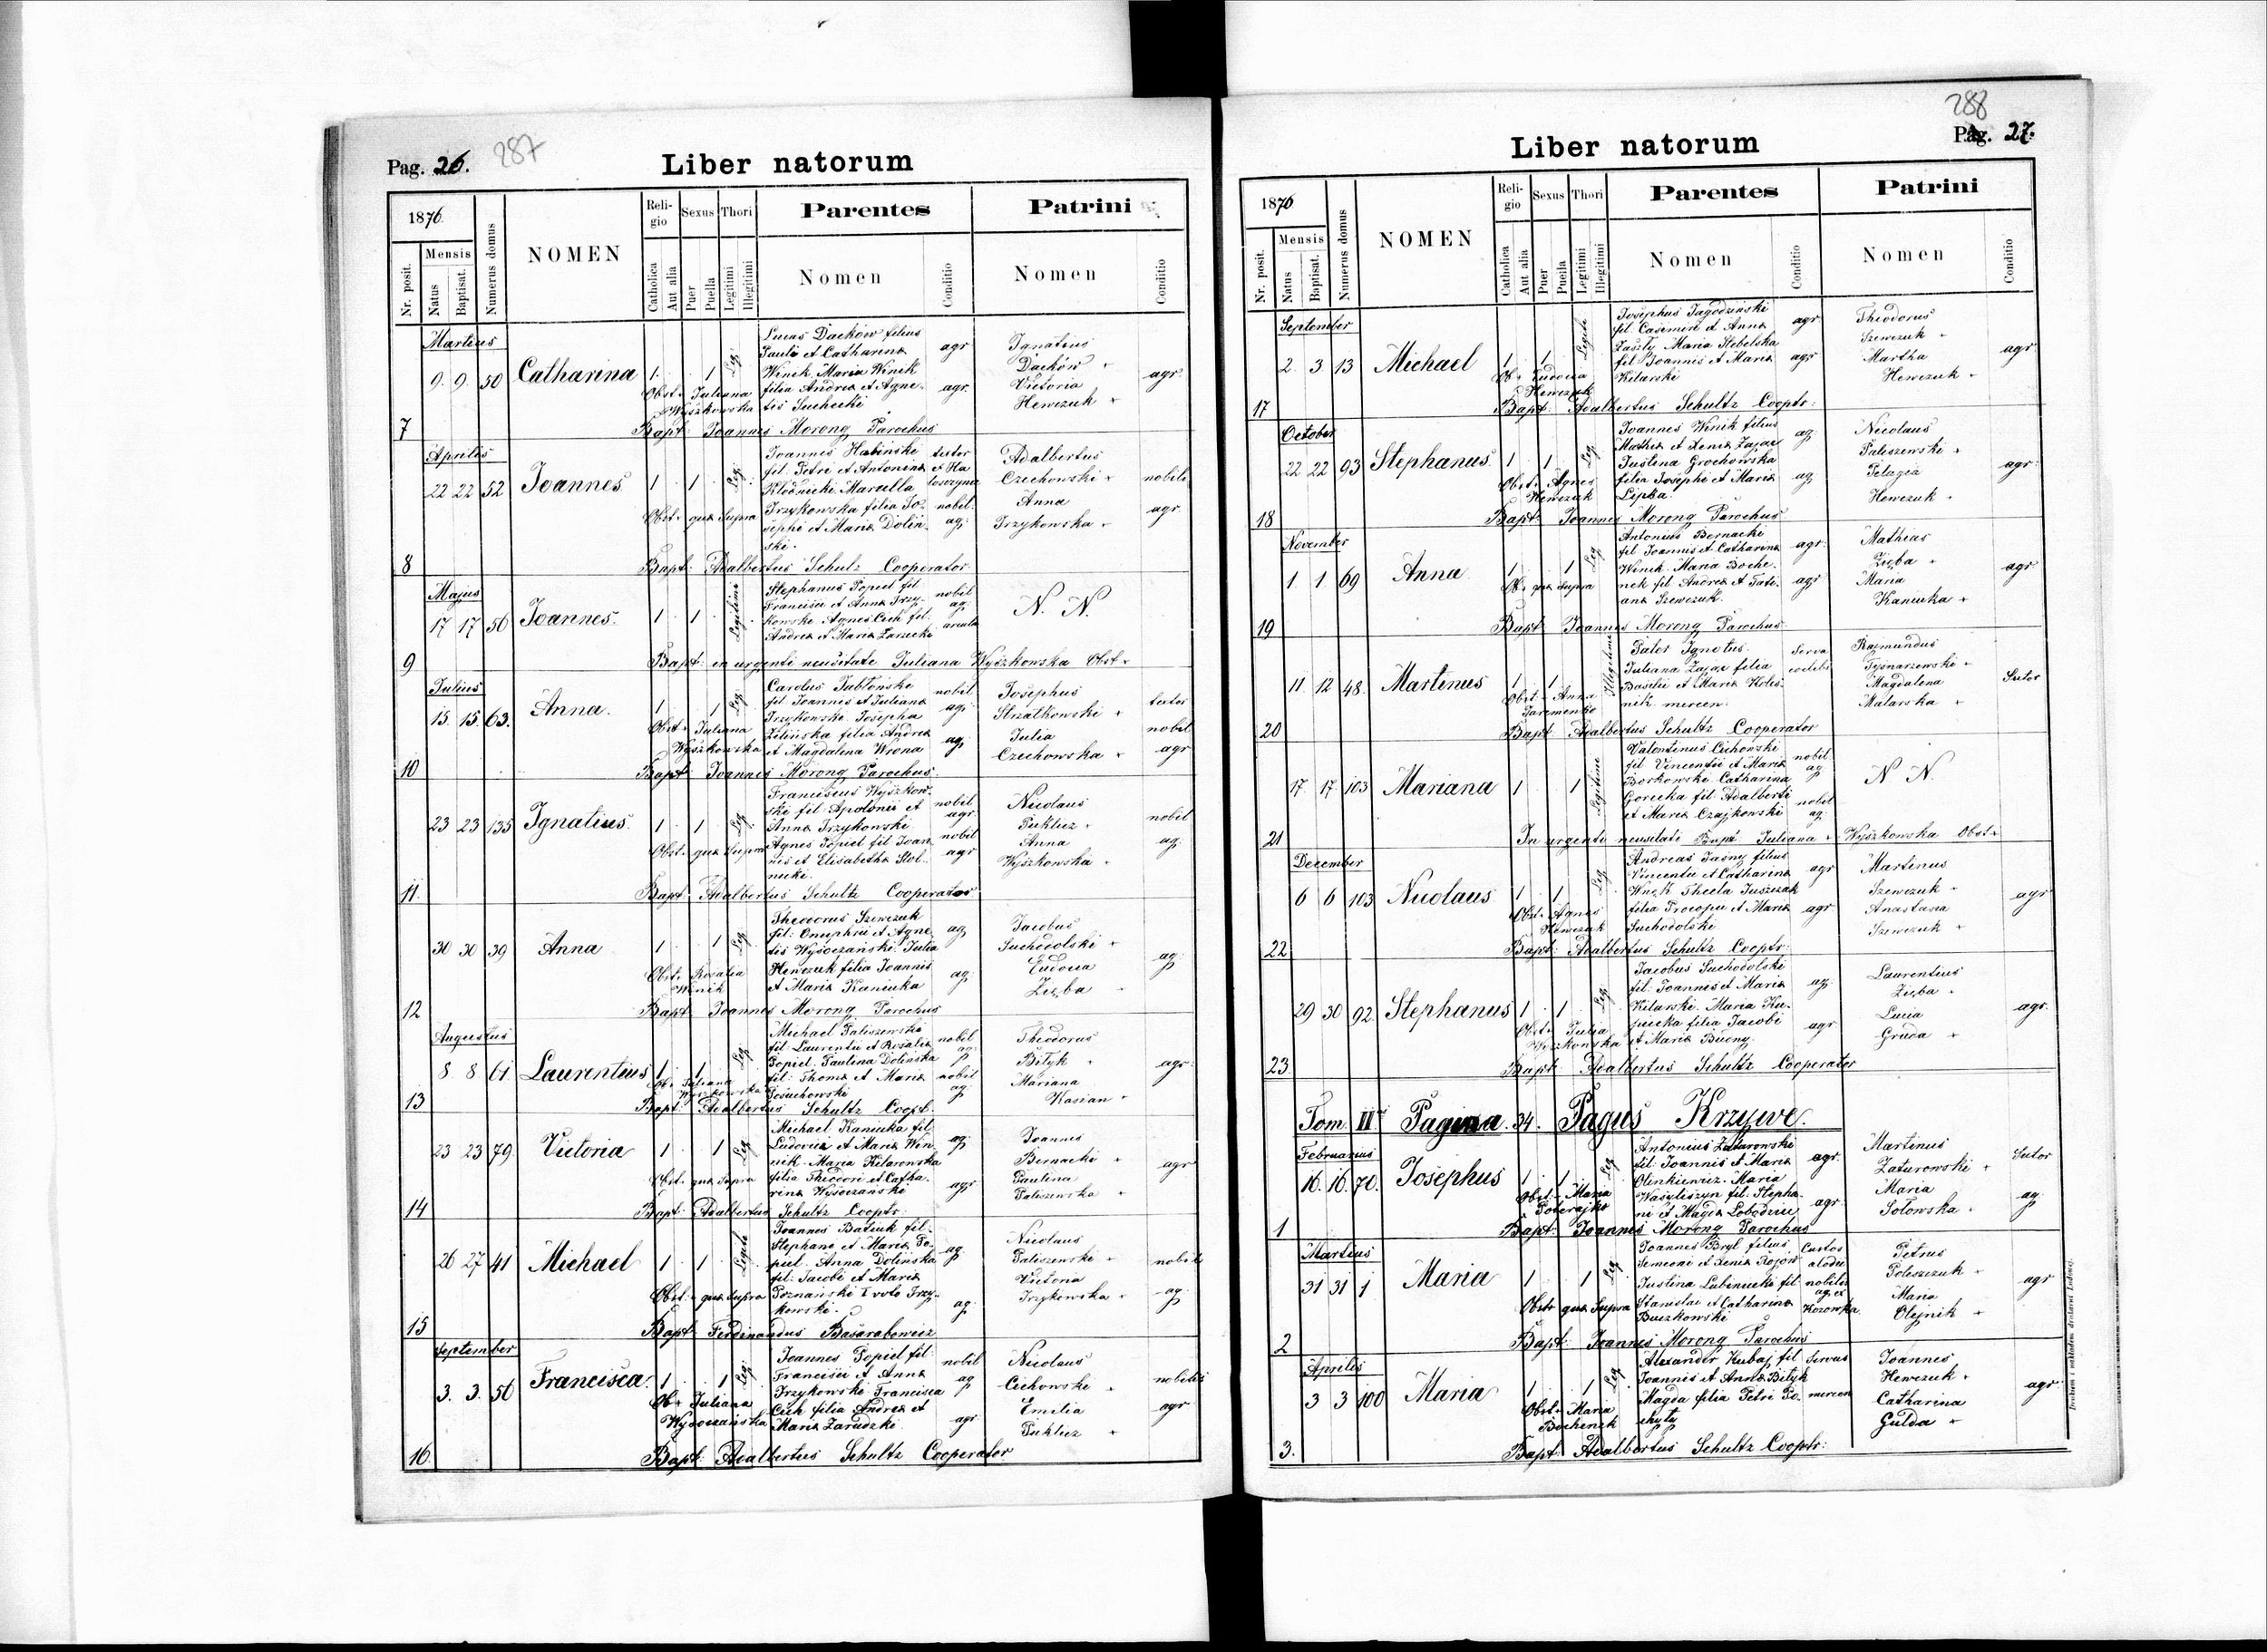 Pag. 26. 287
Liber natorum
1876.
Nr. posit.
Mensis
Natus
Baptisat.
Numerus domus
NOMEN
Religio
Catholica
Aut alia
Sexus
Puer
Puella
Thori
Legitimi
Illegitimi
Parentes
Nomen
Conditio
Patrini
Nomen
Conditio
Martius
7 9. 9. 50 Catharina 1. 1 Leg.
Lucas Dackow filius
Pauli et Catharina agr
Winik Maria Winik
filia Andrea et Agne- agr.
tis Suchecki
Ignatius
Dackow
Victoria
Hewczuk
agr.
Obst. Juliana
Wyszkowska
Bapt: Joannes Morong Parochus
Aprilis
8 22 22 52 Joannes 1 1 Leg.
Joannes Habinski
fil. Petri et Antonina
Klodnicki Marcella
Trzykowska filia Jo- nobil.
sephi et Maria Dolin- ag.
ski.
Adalbertus
Czechowski nobilis
Anna
Trzykowska agr.
Obst. qua Supra
Bapt: Adalbertus Schulz Cooperator
Majus
9 17 17 56 Joannes. 1 1 Legitimi
Stephanus Popiel fil. nobil
Francisci et Anna Trzy- ag.
kowski Agnes Cich fil.
Andrea et Maria Zarucki
N. N.
Bapt: in urgenti necessitate Juliana Wyszkowska Obst.
Julius
10 15 15. 63. Anna. 1 1 Leg.
Carolus Jabłonski nobil
fil. Joannis et Juliana agr
Trzykowski Josepha
Zelinska filia Andrea ag.
et Magdalena Wrona
Josephus
Strzatkowski
Julia nobil
Czechowska agr
Obst. Juliana
Wyszkowska
Bapt: Joannes Morong Parochus.
11. 23 23 135 Ignatius. 1 1 Leg.
Franciscus Wyszkow-
ski fil. Apolonii et nobil agr.
Anna Trzykowski
Agnes Popiel fil Joan nobil
nis et Elisabetha Stol- agr
nicki.
Nicolaus
Puklicz nobil
Anna ag.
Wyszkowska
Obst. qua Supra
Bapt: Adalbertus Schultz Cooperator
12 30 30 39 Anna 1 1 Leg.
Theodorus Szewczuk
fil: Onuphrii et Agne ag.
tis Wysoczanski Julia
Hewczuk filia Joannis
et Maria Kaniuka ag.
Jacobus
Suchodolski
Eudocia
Zięba
ag.
Obst. Rosalia
Winik
Bapt: Joannes Morong Parochus
Augustus
13 8 8 61 Laurentius 1 1 Leg
Michael Paliszewski nobil
fil. Laurentii et Rosalia ag.
Popiel. Paulina Dolinska
fil: Thoma et Maria nobil
Theodorus
Bityk agr.
Mariana
Kasian
Ob. Juliana
Wyszkowska
Bapt: Adalbertus Schultz Coopt.
14 23 23 79 Victoria 1 1 Leg
Michael Kaniuka fil
Ludovici et Maria Win- ag.
nik. Maria Kilarowska
filia Theodori et Catha-
rina Wysoczanski agr
Joannes
Bernacki
Paulina agr
Paliszewska
Obst. qua Supra
Bapt: Adalbertus Schultz Cooptr:
15 26 27 41 Michael 1 1
Joannes Batiuk fil.
Stephani et Maria Po- ag.
piel Anna Dolinska
fil: Jacobi et Maria
Poznanski I voto Trzy-
kowski. ag.
Nicolaus
Paliszewski nobil
Victoria
Trzykowska ag.
Obst. qua Supra
Bapt. Ferdinandus Basarabowicz
September
16. 3. 3. 56 Francisca. 1 1 Leg.
Joannes Popiel fil. nobil
Francisci et Anna ag
Trzykowski Francisca
Cich filia Andrea et
Maria Zarudzki. agr
Nicolaus
Cichowski nobilis
Emilia agr
Puklicz
Ob. Juliana
Wysoczanska
Bapt: Adalbertus Schultz Cooperator
288
Pag. 27.
Liber natorum
1876
Nr. posit.
Mensis
Natus
Baptisat.
Numerus domus
NOMEN
Religio
Catholica
Aut alia
Sexus
Puer
Puella
Thori
Legitimi
Illegitimi
Parentes
Nomen
Conditio
Patrini
Nomen
Conditio
September
17 2 3 13 Michael 1 1
Josephus Jagodzinski
fil. Casimiri et Anna agr
Zaszty Maria Stebelska
fil Joannis et Maria agr
Kilarski
Theodorus
Szewczuk
Martha agr
Hewczuk
Ob. Eudocia
Hewczuk
Bapt: Adalbertus Schultz Cooptr:
October
18 22 22 93 Stephanus. 1 1 Leg
Joannes Winik filius
Mathia et Xenia Zajac ag.
Justina Grochowska
filia Josephi et Maria ag
Lipka.
Nicolaus
Paliszewski
Pelagia agr
Hewczuk
Obst. Agnes
Hewczuk
Bapt: Joannes Morong Parochus
November
19 1 1 69 Anna 1 1 Leg
Antonius Bernacki
fil Joannis et Catharina agr.
Winik. Maria Boche-
nek fil Andrea et Tati- agr
ana Szewczuk.
Mathias
Zięba agr
Maria
Kaniuka
Ob. qua Supra
Bapt Joannes Morong Parochus
20 11 12 48. Martinus 1 1 Illegitimi
Pater Ignotus. Serva
Juliana Zajac filia coelebs
Basilii et Maria Koles-
nik mercen.
Rajmundus
Magdalena Sutor
Malarska
Obst. Anna
Jaremenko
Bapt. Adalbertus Schultz Cooperator
21 17. 17. 103 Mariana 1 1 Legitimi
Valentinus Cichowski nobil.
fil Vincentii et Maria ag.
Borkowski Catharina
Gorecka fil Adalberti nobil
et Maria Czajkowski ag.
N N.
In urgenti necessitati Bapt Juliana Wyszkowska Obst.
December
22 6 6 103 Nicolaus 1 1 Leg
Andreas Jasny filius
Vincentii et Catharina agr
Wnęk Thecla Juszczak
filia Procopii et Maria agr
Suchodolski
Martinus
Szewczuk agr
Anastasia
Szewczuk
Obst. Agnes
Hewczuk
Bapt: Adalbertus Schultz Cooptr:
23 29 30 92. Stephanus 1 1 Leg
Jacobus Suchodolski
fil. Joannis et Maria ag.
Kilarski. Maria Ku-
pucka filia Jacobi agr
et Maria Bucny.
Laurentius
Zięba agr.
Lucia
Gruda
Obst. Julia
Wyszkowska
Bapt: Adalbertus Schultz Cooperator
Tom II Pagina 34. Pagus Krzywe.
Februarius
1 16. 16. 70. Josephus 1 1 Leg
Antonius Zaturowski
fil: Joannis et Maria agr.
Olenkiewicz. Maria
Wasyliszyn fil. Stepha-
ni et Magda Lobodziec agr
Martinus Sutor
Zaturowski
Maria ag.
Sotowska
Obst. Maria
Poberajko
Bapt: Joannes Morong Parochus
Martius
2 31 31 1 Maria 1 1 Leg
Joannes Bryl filius Custos
Semeoni et Xenia Rojow
Justina Lubiniecki fil. nobilis
Stanislai et Catharina
Buczkowski
Petrus
Poleszczuk agr
Maria
Olejnik
Obstr qua Supra
Bapt: Joannes Morong Parochus
Aprilis
3. 3 3 100 Maria 1 1 Leg
Alexander Kubaj fil Servus
Joannis et Anna Bityk
Magda filia Petri Po- mercen
chyty
Joannes
Hewczuk agr
Catharina
Gulda
Obst. Maria
Bochenek
Bapt: Adalbertus Schultz Cooptr: